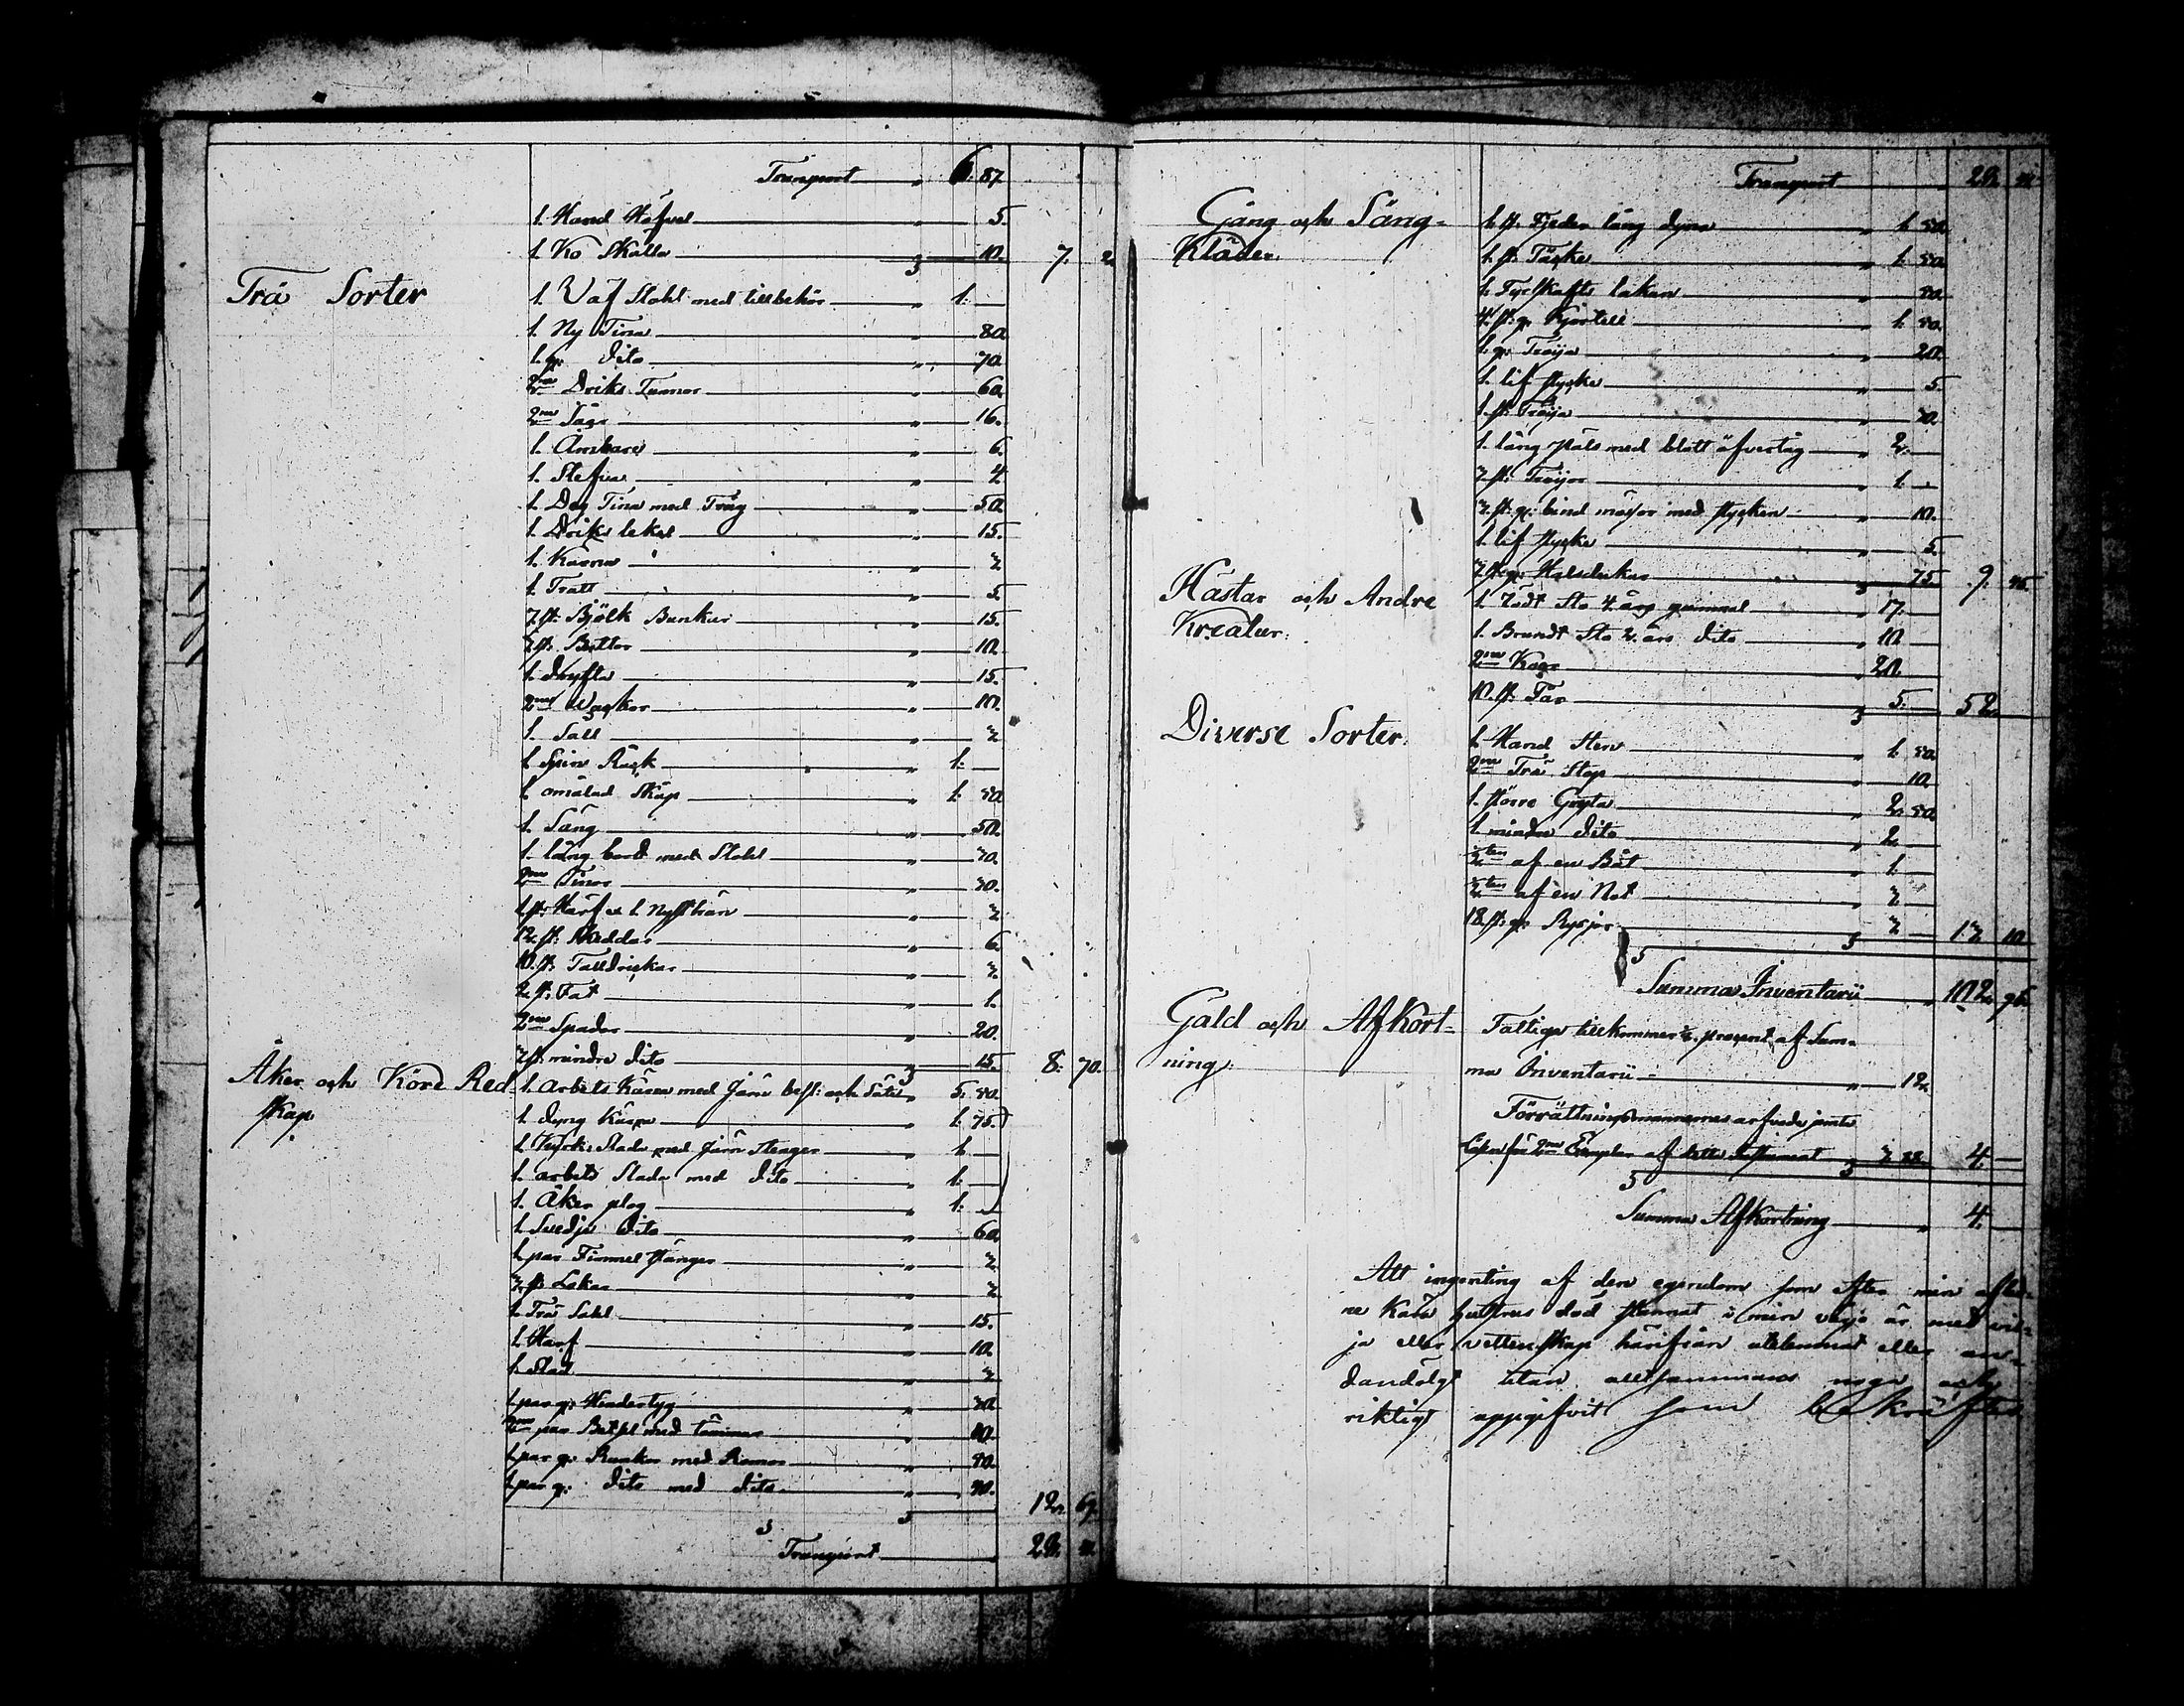 Transport „ 6. 87.
1. Hand Häfvel 5.
1. Ko Skälla 10. 7. 2
Trä Sorter
1. Väf Stohl med tillbehör „ 1. —
1. Ny Tina „ 80.
1. g: dito „ 70.
2ne Driks Tunnor „ 60.
2ne Såar „ 16.
1. Ämbare „ 6.
1. Stefva „ 4
1. Deg Tina med Tråg „ 50.
1. Driks lekel „ 15.
1. Kärna „ 3
1. Tratt „ 5.
7. st: Bjölk Bunkar „ 15.
3 st: Byttor „ 10.
1. dryfta „ 15.
2ne 10.
1. Såll „ 3
1. Spin Råck „ 1. —
1. omålad Skåp „ 1. 50
1. Säng „ 50.
1. lång bord med Stohl „ 30.
2ne Tinor „ 30.
1. st: Härf o. 1. Nystträn „ 3
12. st: Skeddar „ 6.
10. st: Talldrickar „ 3.
2. st: Fat „ 1.
2ne Spador „ 20.
3 st: mindre dito 15. 8. 70.
Åker och Köre Red-
skap.
1. arbets Kärra med Järn besl: och Säte „ 5. 50.
1. dyng Kärra „ 1. 75.
1. Kyrk Slada med Järn Stenger „ 1. —
1. arbets Slada med dito „ 1. —
1. Åker plog „ 1. —
1. Svedje dito „ 60.
1. par Fimmel stänger „ 3.
3 st: Lokar „ 3
1. Trä Sahl „ 15.
1. Harf „ 10.
1. Slad „ 3
1. par g: Hindertyg „ 30
2ne par Betsel med tömmar „ 80.
1. par g: Rankor med Remar „ 80.
1. par g: dito med dito „ 90.
12. 69.
Transport 28.
Transport 28.
Gång och Säng-
Kläder.
1. st: Fjeder lång dyna „ 1. 50.
1. st: Täcke „ 1. 50.
1. Fyrskafts lakan „ 80.
4. st: g: Kjortell „ 1. 50.
1. g: Tröija „ 20.
1. lif stycke „ 5.
1. st: Tröija „ 30.
1. lång päls med blått öfvertåg „ 2. —
3 st: Tröijor „ 1. —
3. st: g: bind mössor med stycken „ 10.
1. lif stycke „ 5.
3 st: g: Halsdukar 75. 9. 45.
Hästar och Andre
Kreatur.
1. Rödt Sto 4. års gammal „ 17. —
1. Brundt Sto 2. års dito „ 10 —
2ne Kor „ 20. —
10. st: Får 5. — 52. —
Diverse Sorter.
1. Hand Sten „ 1. 50.
2ne Trä Stop „ 10.
1. större Gryta „ 2. 50.
1. mindre dito „ 2. —
af en Båt „ 1. —
af en Not „ 3 —
18. st: g: Rysjor 3 — 13. 10
Summa Inventarii „ 102. 96.
Gäld och AfKort-
ning.
Fattige tillkommer procent af Sum-
ma Inventarii „ 12.
Förrättningsmannernes arfvode jemte
Lösen för 2ne Exemplar af dette Instrument 3 88. 4. —
Summa AfKortning „ 4. —
Att ingenting af den egendom som efter min afled-
ne Kära hustrus död stannat i min värjo är med vil-
ja eller vettenskap härifrån utelemnat eller un-
dandolgt utan alltsammans noga och
riktigt uppgifvit som bekräftar